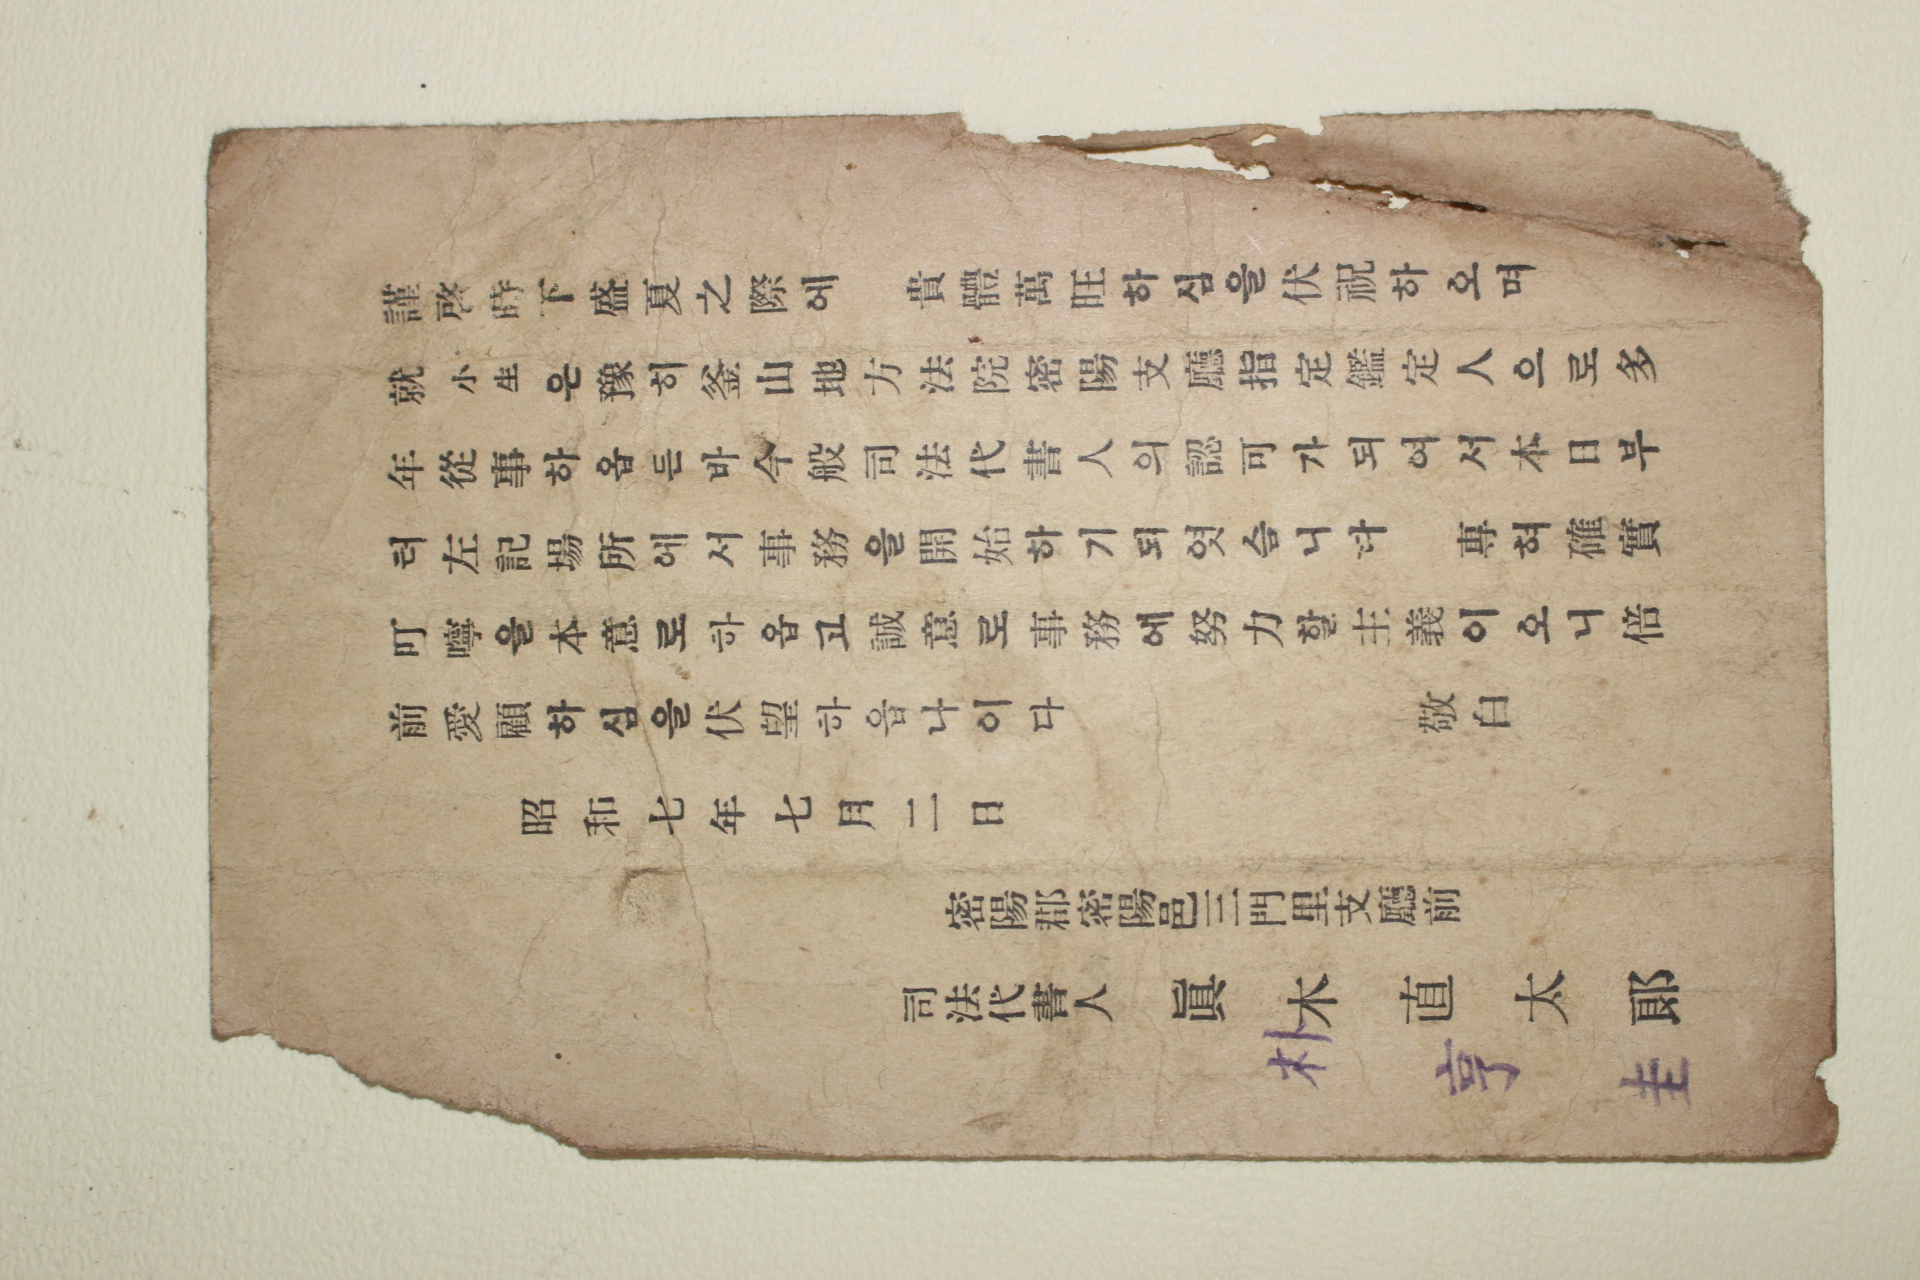 謹啓時下盛夏之際에 貴體萬旺하심을伏祝하오며
就小生은豫히釜山地方法院密陽支廳指定鑑定人으로多
年從事하옵든바今般司法代書人의認可가되여서本日부
터左記場所에서事務을開始하기되엿슴니다 專혀確實
叮嚀을本意로하옵고誠意로事務에努力할主義이오니倍
前愛顧하심을伏望하옵나이다 敬白
昭和七年七月二日
密陽郡密陽邑三門里支廳前
司法代書人 眞木直太郞
朴亨圭